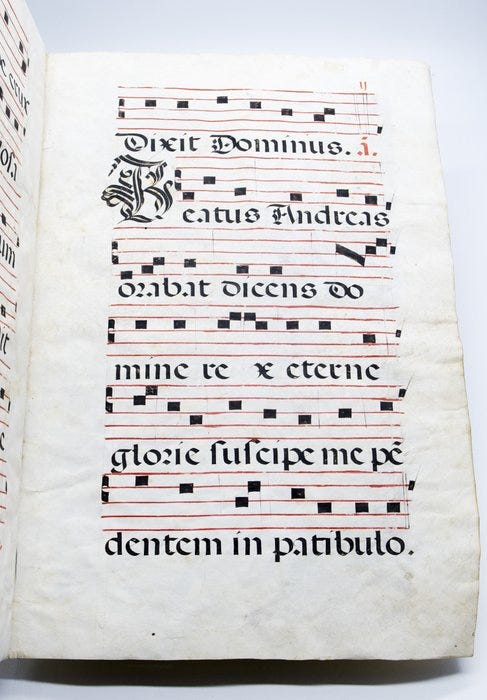 y
Dixit Dominus. i.
Beatus Andreas
orabat dicens do
mine re x eterne
glorie suscipe me pē
dentem in patibulo.